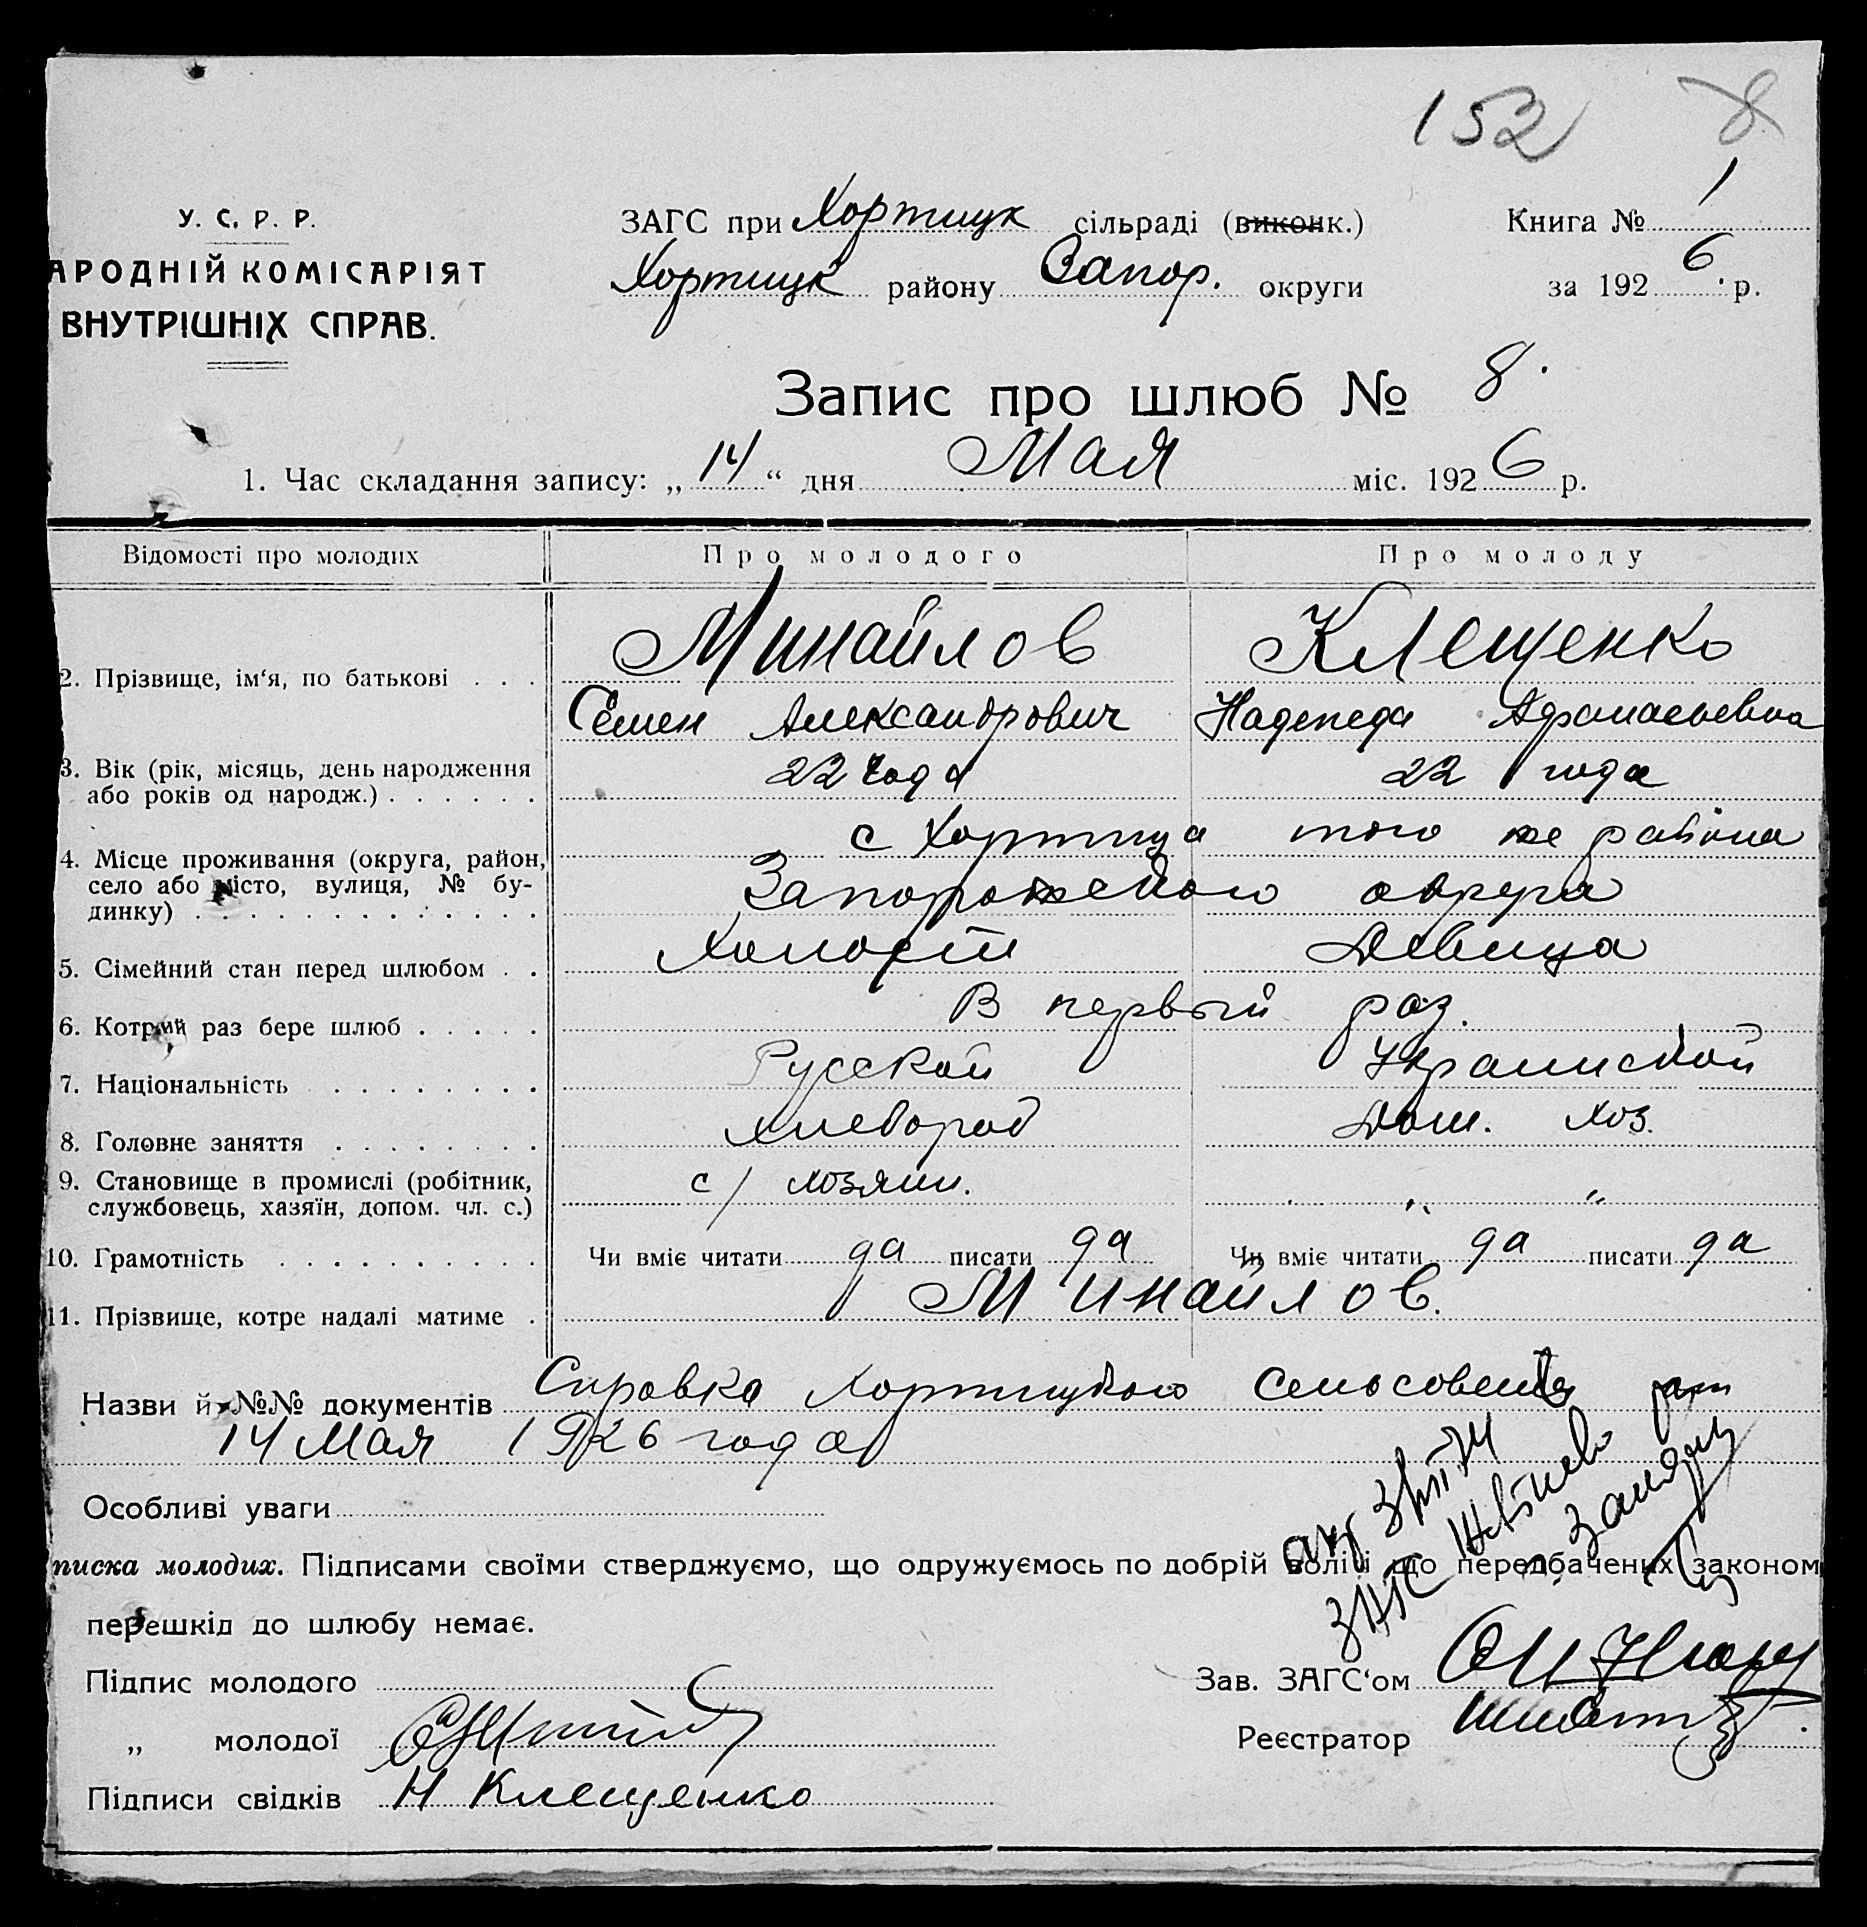 152 8
У. С. Р. Р.
АРОДНІЙ КОМІСАРІЯТ
ВНУТРІШНІХ СПРАВ.
ЗАГС при Хортицк сільраді (виконк.)
Хортицк району Запор. округи
Книга № 1
за 1926 р.
Запис про шлюб № 8.
1. Час складання запису: „14“ дня Мая міс. 1926 р.
Відомості про молодих Про молодого Про молоду
2. Прізвище, ім‘я, по батькові . . . Минайлов Клещенко
Семен Александрович Надежда Афанасьевна
3. Вік (рік, місяць, день народження
або років од народж.) . . . . . . 22 года 22 года
4. Місце проживання (округа, район,
село або місто, вулиця, № бу-
динку) . . . . . . . . . . . . .
с Хортица того же района
Запорожского округа
5. Сімейний стан перед шлюбом . . Холост Девица
6. Котрий раз бере шлюб . . . . . В первый раз.
7. Національність . . . . . . . . Русской Украинской
8. Головне заняття . . . . . . . . Хлебороб Дом. хоз.
9. Становище в промислі (робітник,
службовець, хазяїн, допом. чл. с.) с/ хозяин. „ “
10. Грамотність . . . . . . . . . . Чи вміє читати да писати да Чи вміє читати да писати да
11. Прізвище, котре надалі матиме . Минайлов.
Назви й №№ документів Справка Хортицкого сельсовета
14 Мая 1926 года
Особливі уваги
писка молодих. Підписами своїми стверджуємо, що одружуємось по добрій волі і що передбачених законом
перешкід до шлюбу немає.
ЗАГС
Підпис молодого
„ молодої
Підписи свідків Н Клещенко
Зав. ЗАГС‘ом
Реєстратор